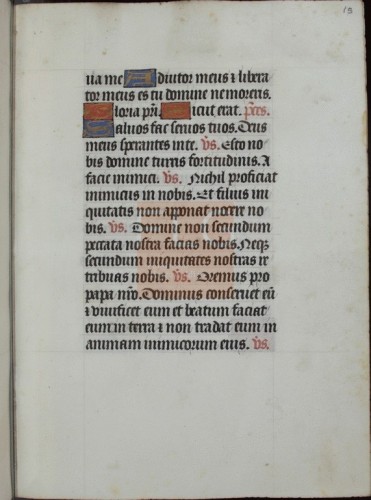 13
ua me Adiutor meus ⁊ libera
tor meus es tu domine ne moreris.
Gloria pri. Sicut erat. p̄ces.
Saluos fac seruos tuos. Deus
meus sperantes in te. v̄s. Esto no
bis domine turris fortitudinis. A
facie inimici. v̄s. Nichil proficiat
inimicus in nobis. Et filius ini
quitatis non apponat nocere no
bis. v̄s. Domine non secundum
peccata nostra facias nobis. Neqꝫ
secundum iniquitates nostras re
tribuas nobis. v̄s. Oremus pro
papa nr̄o. Dominus conseruet eū
⁊ viuificet eum et beatum faciat
eum in terra ⁊ non tradat eum in
animam inimicorum eius. v̄s.